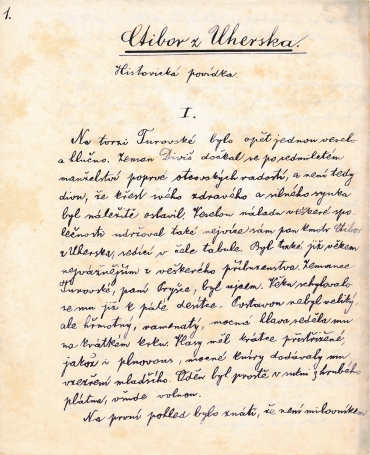 1.
Ctibor z Uherska.
Historická povídka.
I.
Na tvrzi Turovské bylo opět jednou veselo
a hlučno. Zeman Diviš dočkal se po sedmiletém
manželství poprvé otcovských radostí, a není tedy
divu, že křest svého zdravého a silného synka
byl náležitě oslavil. Veselou náladu veškeré spo-
lečnosti udržoval také nejvíce sám pan kmotr Ctibor
z Uherska, sedící v čele tabule. Byl také již věkem
nejvážnějším z veškerého příbuzenstva. Zemance
Turovské, paní Bryjce, byl ujcem. Věku schylovalo
se mu již k páté desítce. Postavou nebyl veliký,
ale hřmotný, ramenatý, mocná hlava seděla mu
na krátkém krku. Vlasy měl krátce přistřižené,
jakož i plnovous, mocné kníry dodávaly mu
vzezření mladšího. Oděn byl prostě v suknici z hrubého
plátna, všude volnou.
Na první pohled bylo znáti, že není milovníkem